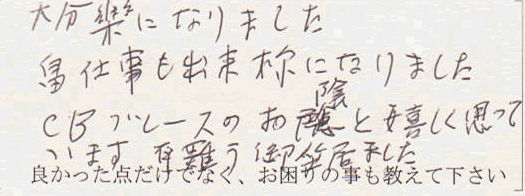 大分樂になりました
畠仕事も出来様になりました
CBブレースのお陰と嬉しく思って
います 有難う御坐居ました
良かった点だけでなく、お困りの事も教えて下さい